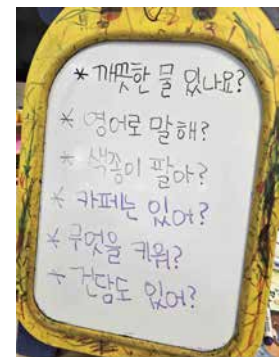 * 깨끗한 물 있나요?
* 영어로 말해?
* 색종이 팔아?
* 카페는 있어?
* 무엇을 키워?
* 건담도 있어?